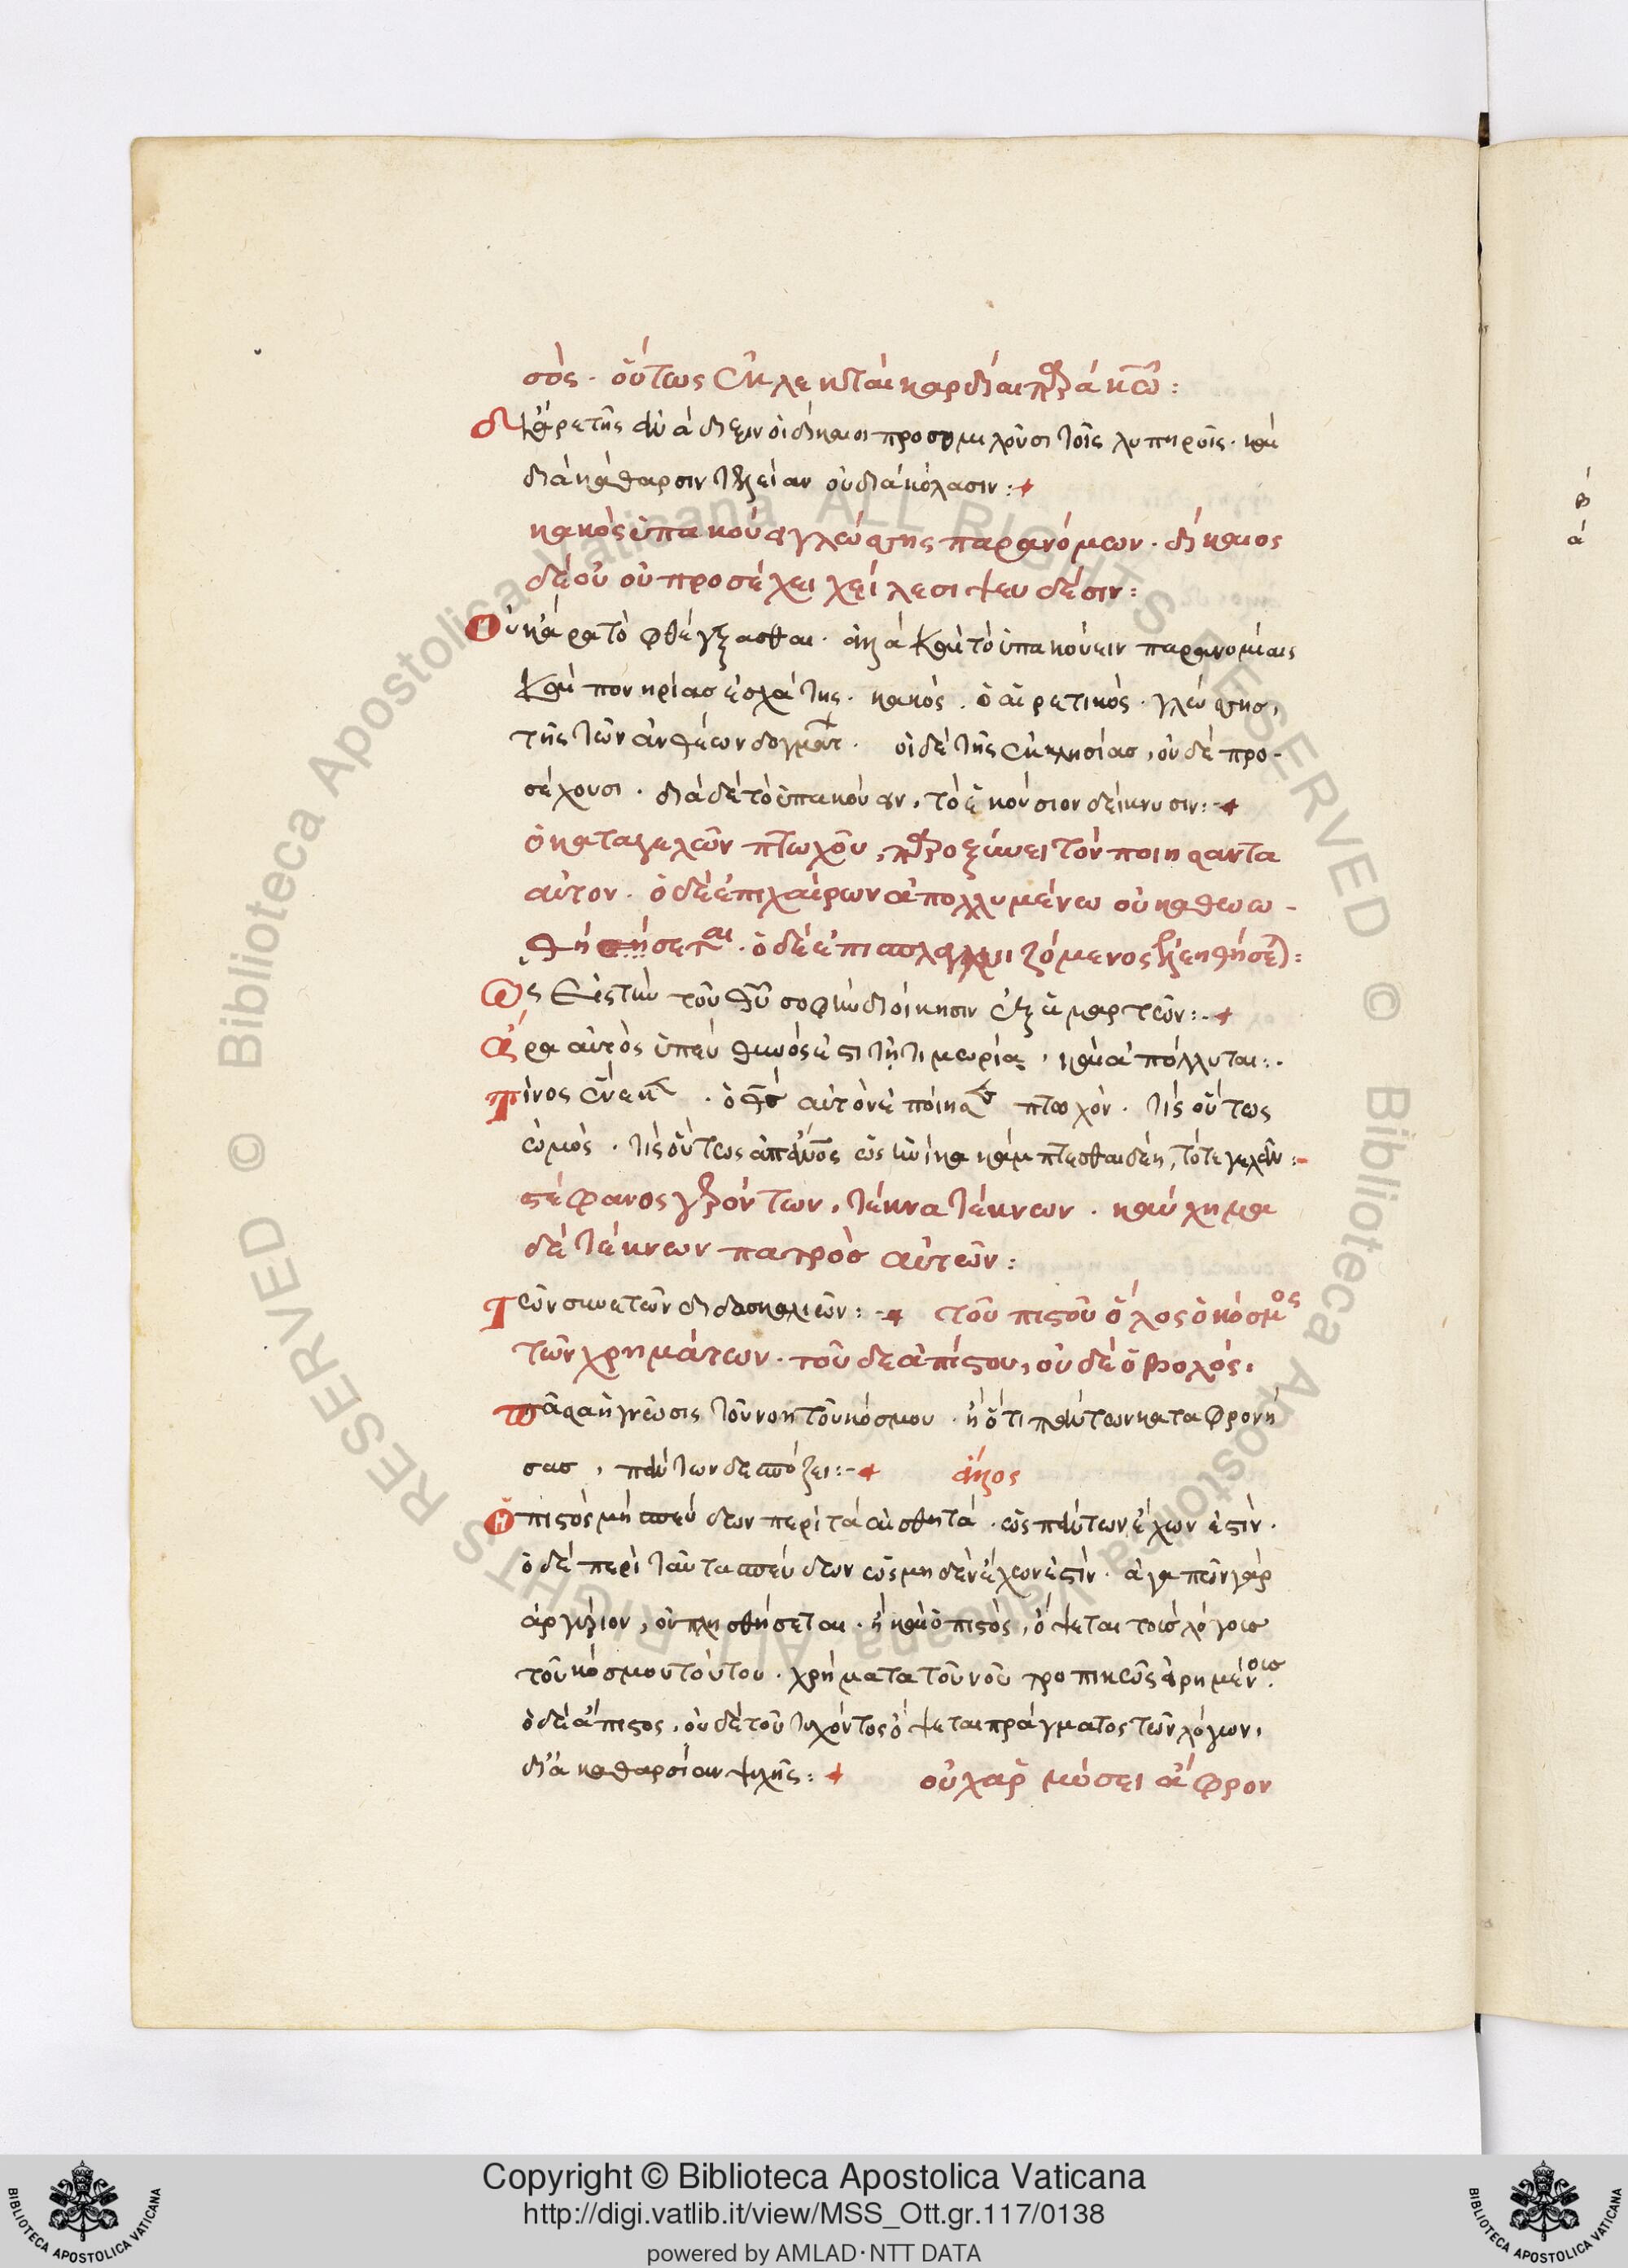 σός. οὕτως ἐκλεκταὶ καρδίαι παρὰ κυρίῳ:
δι' ἀρετῆς ἀνάδειξιν οἱ δίκαιοι προσομιλοῦσι τοῖς λυπηροῖς. καὶ
διὰ κάθαρσιν τελείαν οὐ διὰ κόλασιν:
κακὸς ὑπακούει γλώσσης παρανόμων. δίκαιος
δὲ οὐ προσέχει χείλεσι ψευδέσιν:
Οὐκ ἄρα τὸ φθέγξασθαι. ἀλλὰ καὶ τὸ ὑπακούειν παρανομίαις
καὶ πονηρίας ἐσχάτης. κακὸς. ὁ αἱρετικὸς. γλώσσης,
τῆς τῶν ἀνθέων δογμάτ. οἱ δὲ τῆς ἐκκλησίας, οὐδὲ προ-
σέχουσι. διὰ δὲ τὸ ὑπακούειν, τὸ ἑκούσιον δείκνυσιν:
ὁ καταγελῶν πτωχοῦ, παροξύνει τὸν ποιήσαντα
αὐτον. ὁ δὲ ἐπιχαίρων ἀπολλυμένω οὐκ ἀθωω-
θήσεται. ὁ δὲ ἐπισπλαγχνιζόμενος ἐλεηθήσεται:
Ὡς εἰς τὴν τοῦ θῡ σοφὴν διοίκησιν ἐξαμαρτών:
Ἄρα αὐτὸς ὑπεύθυνός ἐστι τῇ τιμωρία, καὶ ἀπόλλυται:
Τίνος ἕνεκ. ὁ θς αὐτὸν ἐποίησ πτωχόν. τίς οὕτως
ὠμός. τίς οὕτως ἀπάνος ὡς ἡνίκα κάμπτεσθαι δέη, τότε γελᾶν:
στέφανος γερόντων, τέκνα τέκνων. καύχημα
δὲ τέκνων πατρὸς αὐτῶν:
Τῶν συνετῶν διδασκαλιῶν: τοῦ πιστοῦ ὅλος ὁ κόσμος
τῶν χρημάτων. τοῦ δὲ ἀπίστου, οὐδὲ ὀβολός.
πᾶσα ἡ γνῶσις τοῦ νοητοῦ κόσμου. ἢ ὅτι πάντων καταφρονή
σας, πάντων δεσπόζει: ἄλλος
ὁ πιστὸς μὴ σπεύδων περὶ τὰ αἰσθητὰ. ὡς πάντων ἔχων ἐστίν.
ὁ δὲ περὶ ταῦτα σπεύδων ὡς μηδὲν ἔχων ἐστίν. ἀγαπῶν γὰρ
ἀργύριον, οὐ πλησθήσεται. ἢ καὶ ὁ πιστὸς, ὄψεται τοῖς λόγοις
τοῦ κόσμου τούτου. χρήματα τοῦ νοῦ τροπικῶς εἰρημένοις.
ὁ δὲ ἄπιστος, οὐδὲ τοῦ τυχόντος ὄψεται πράγματος τῶν λόγων,
δι' ἀκαθαρσίαν ψυχῆς: οὐχ ἁρμόσει ἄφρον
β
α
Copyright © Biblioteca Apostolica Vaticana
http://digi.vatlib.it/view/MSS_Ott.gr.117/0138
powered by AMLAD·NTT DATA